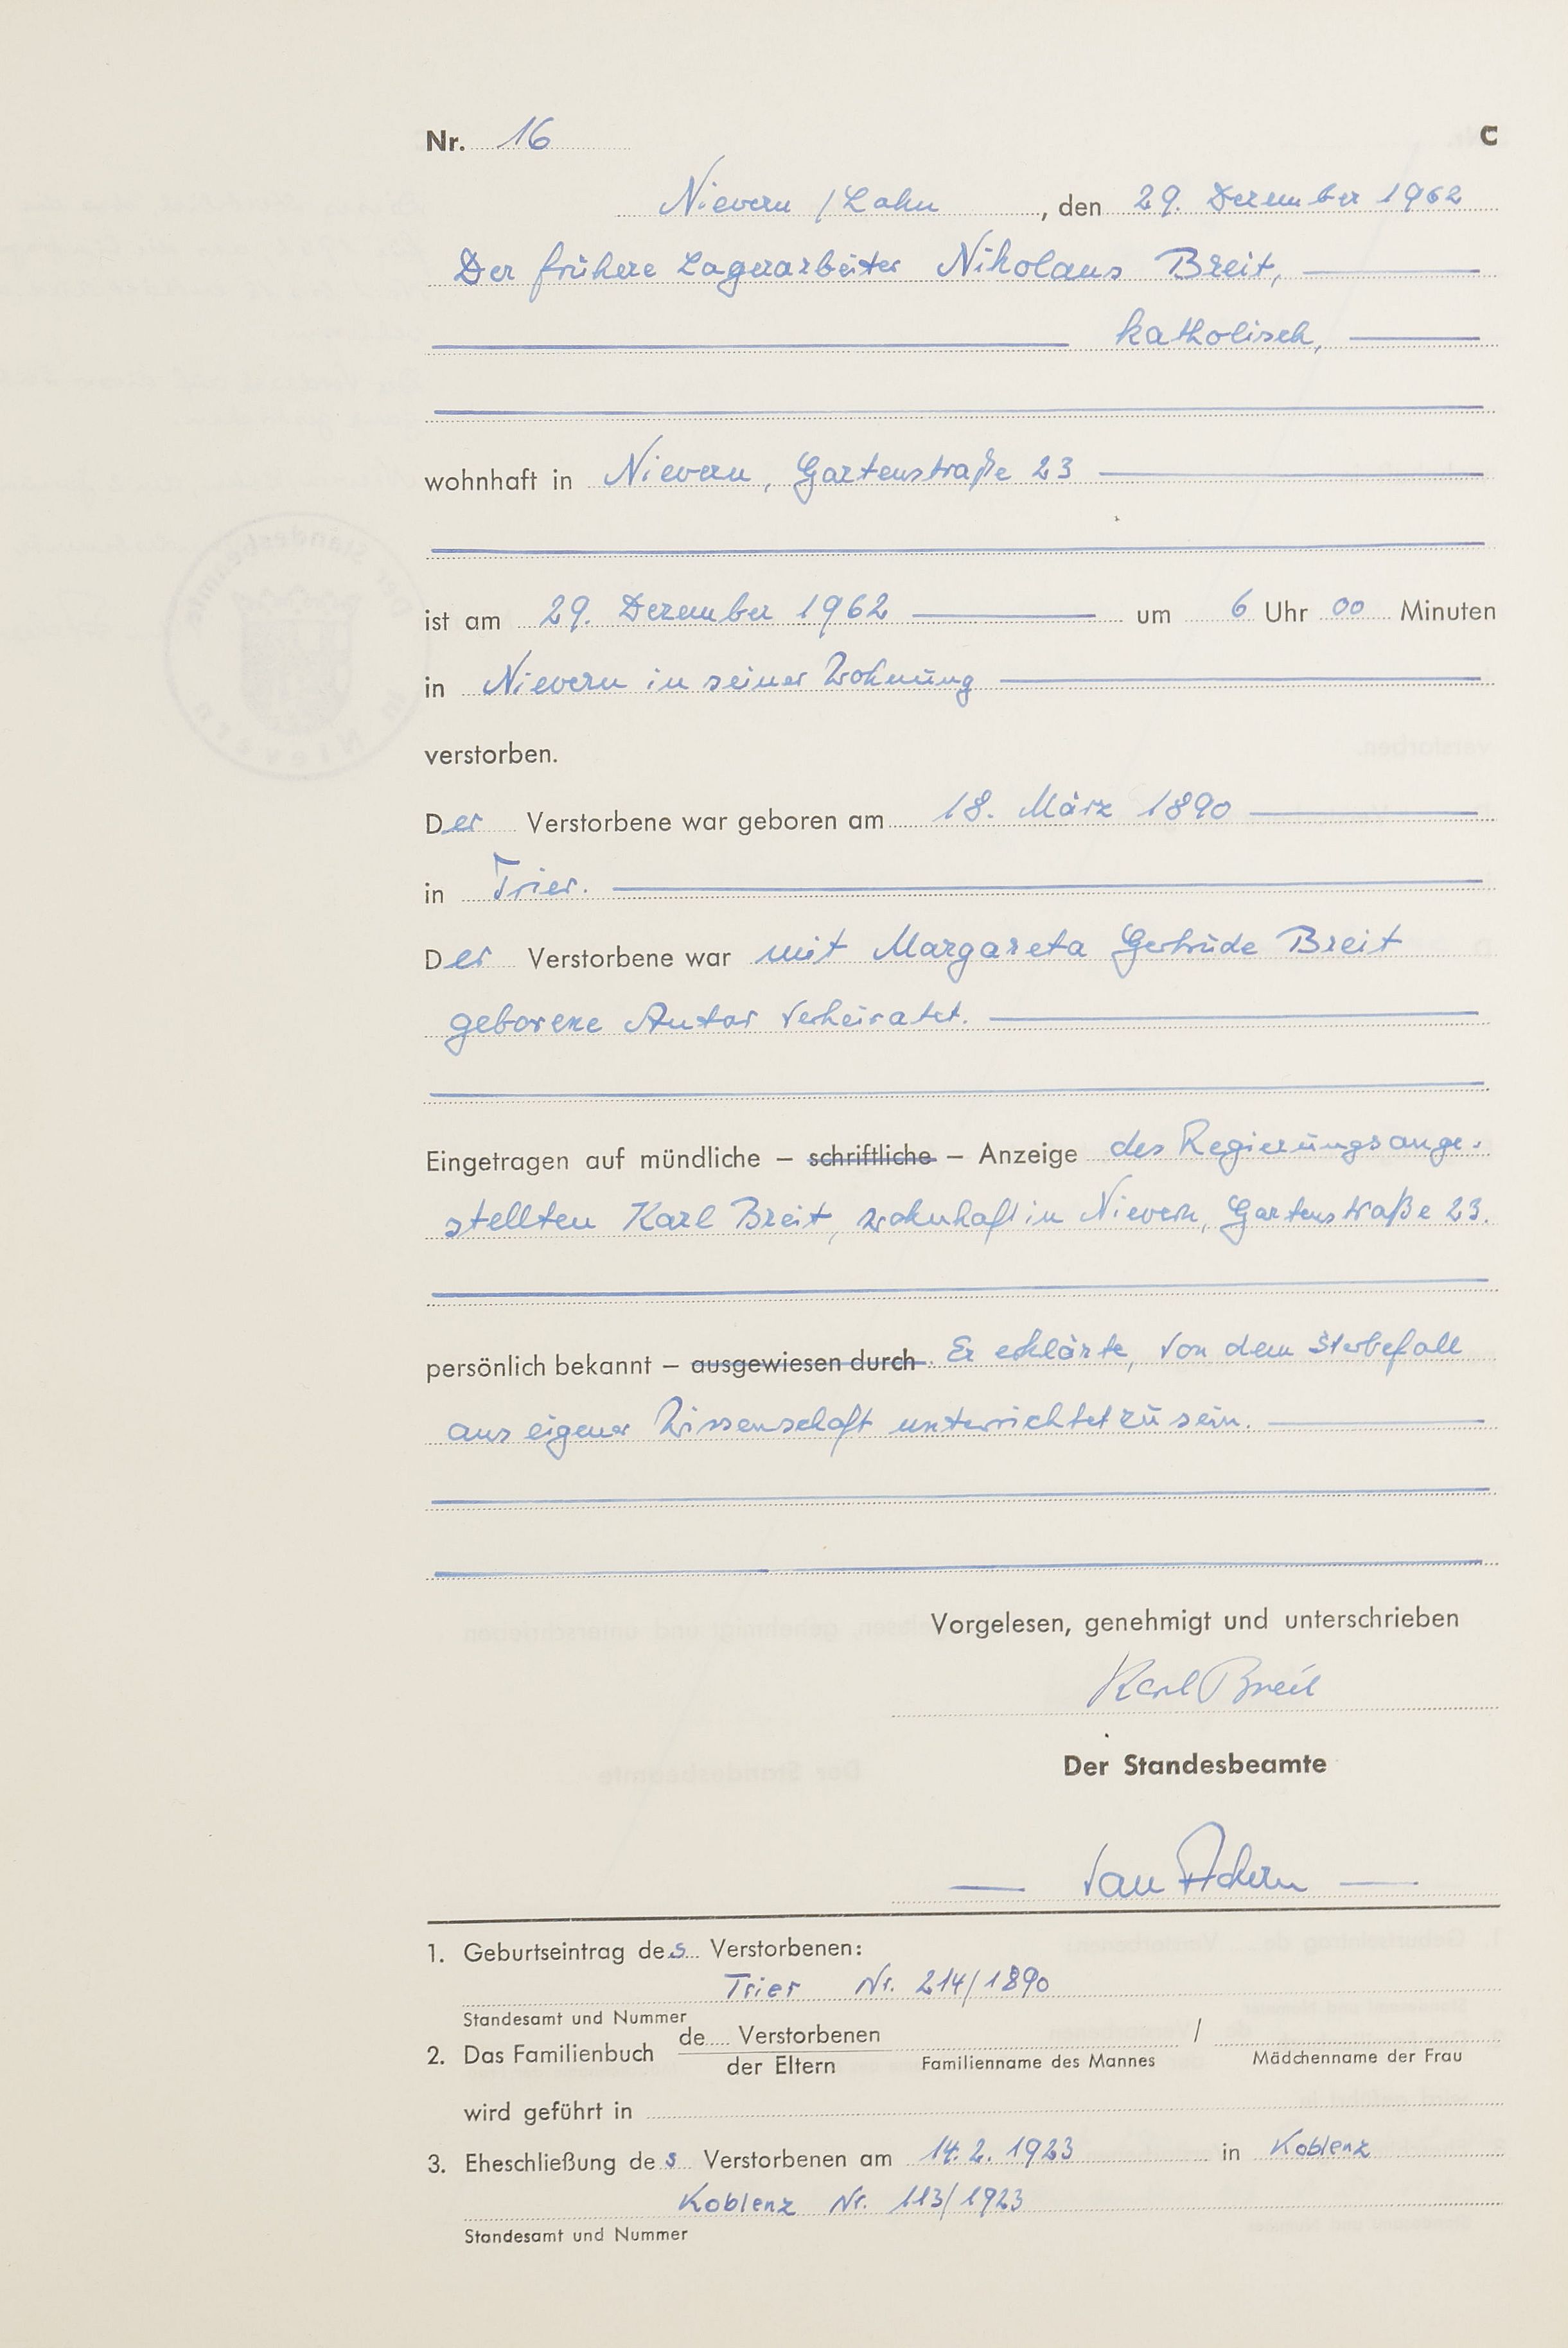 Nr. 16 C
Nievern / Lahn, den 29. Dezember 1962
Der frühere Lagerarbeiter Nikolaus Breit,
katholisch,
wohnhaft in Nievern, Gartenstraße 23
ist am 29. Dezember 1962 um 6 Uhr 00 Minuten
in Nievern in seiner Wohnung
verstorben.
Der Verstorbene war geboren am 18. März 1890
in Trier.
Der Verstorbene war mit Margareta Gertrude Breit
geborene Autor verheiratet.
Eingetragen auf mündliche – schriftliche – Anzeige des Regierungsange-
stellten Karl Breit, wohnhaft in Nievern, Gartenstraße 23.
persönlich bekannt – ausgewiesen durch. Er erklärte, von dem Sterbefall
aus eigener Wissenschaft unterrichtet zu sein.
Vorgelesen, genehmigt und unterschrieben
Karl Breit
Der Standesbeamte
1. Geburtseintrag des Verstorbenen:
Trier Nr. 214/1890
Standesamt und Nummer
2. Das Familienbuch de.... Verstorbenen /
der Eltern Familienname des Mannes Mädchenname der Frau
wird geführt in
3. Eheschließung des Verstorbenen am 14. 2. 1923 in Koblenz
Koblenz Nr. 113/1923
Standesamt und Nummer